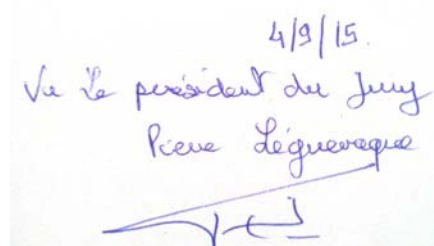 4/9/15.
Vu le président du Jury
Pierre Léguevaque